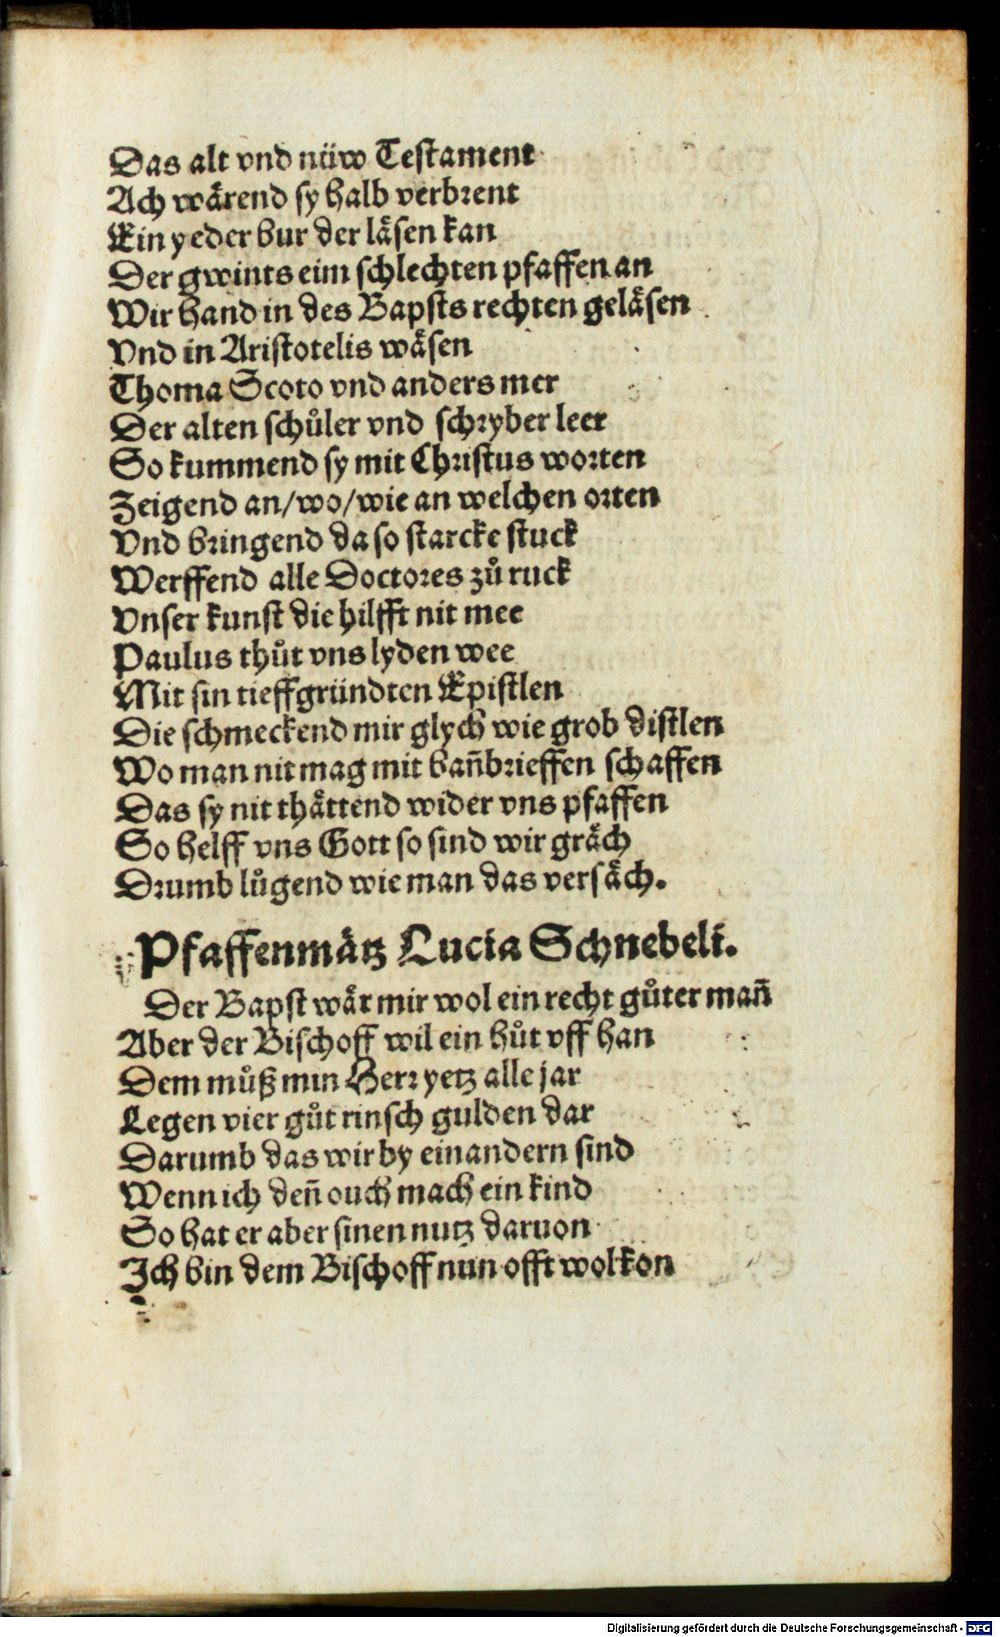 Das alt vnd nüw Testament
Ach wärend sy halb verbrent
Ein yeder bur der läsen kan
Der gwints eim schlechten pfaffen an
Wir hand in des Bapsts rechten geläsen
Vnd in Aristotelis wäsen
Thoma Scoto vnd anders mer
Der alten schůler vnd schryber leer
So kummend sy mit Christus worten
Zeigend an/wo/wie an welchen orten
Vnd bringend da so starcke stuck
Werffend alle Doctores zů ruck
Vnser kunst die hilfft nit mee
Paulus thůt vns lyden wee
Mit sin tieffgründten Epistlen
Die schmeckend mir glych wie grob distlen
Wo man nit mag mit bañbrieffen schaffen
Das sy nit thättend wider vns pfaffen
So helff vns Gott so sind wir gräch
Drumb lůgend wie man das versäch.
Pfaffenmätz Lucia Schnebeli.
Der Bapst wär mir wol ein recht gůter mañ
Aber der Bischoff wil ein hůt vff han
Dem můß min Herr yetz alle jar
Legen vier gůt rinsch gulden dar
Darumb das wir by einandern sind
Wenn ich deñ ouch mach ein kind
So hat er aber sinen nutz daruon
Ich bin dem Bischoff nun offt wol kon
Digitalisierung gefördert durch die Deutsche Forschungsgemeinschaft - DFG